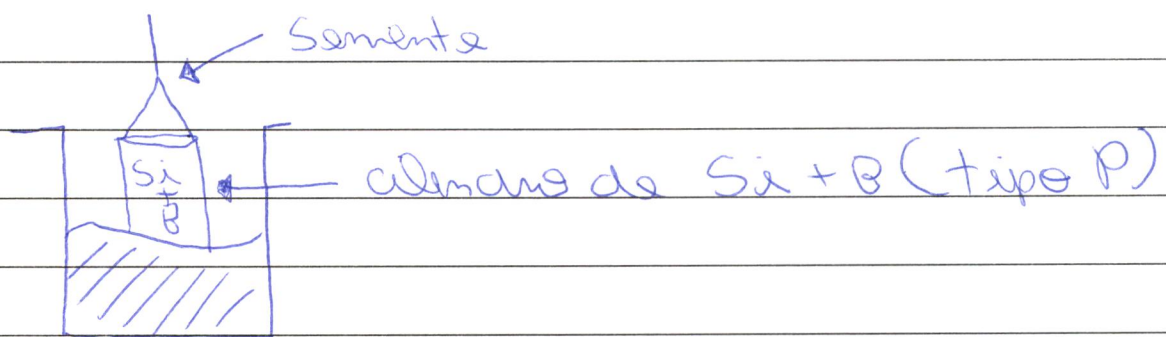 Semente
Si
+
B
cilindro de Si + B (tipo P)